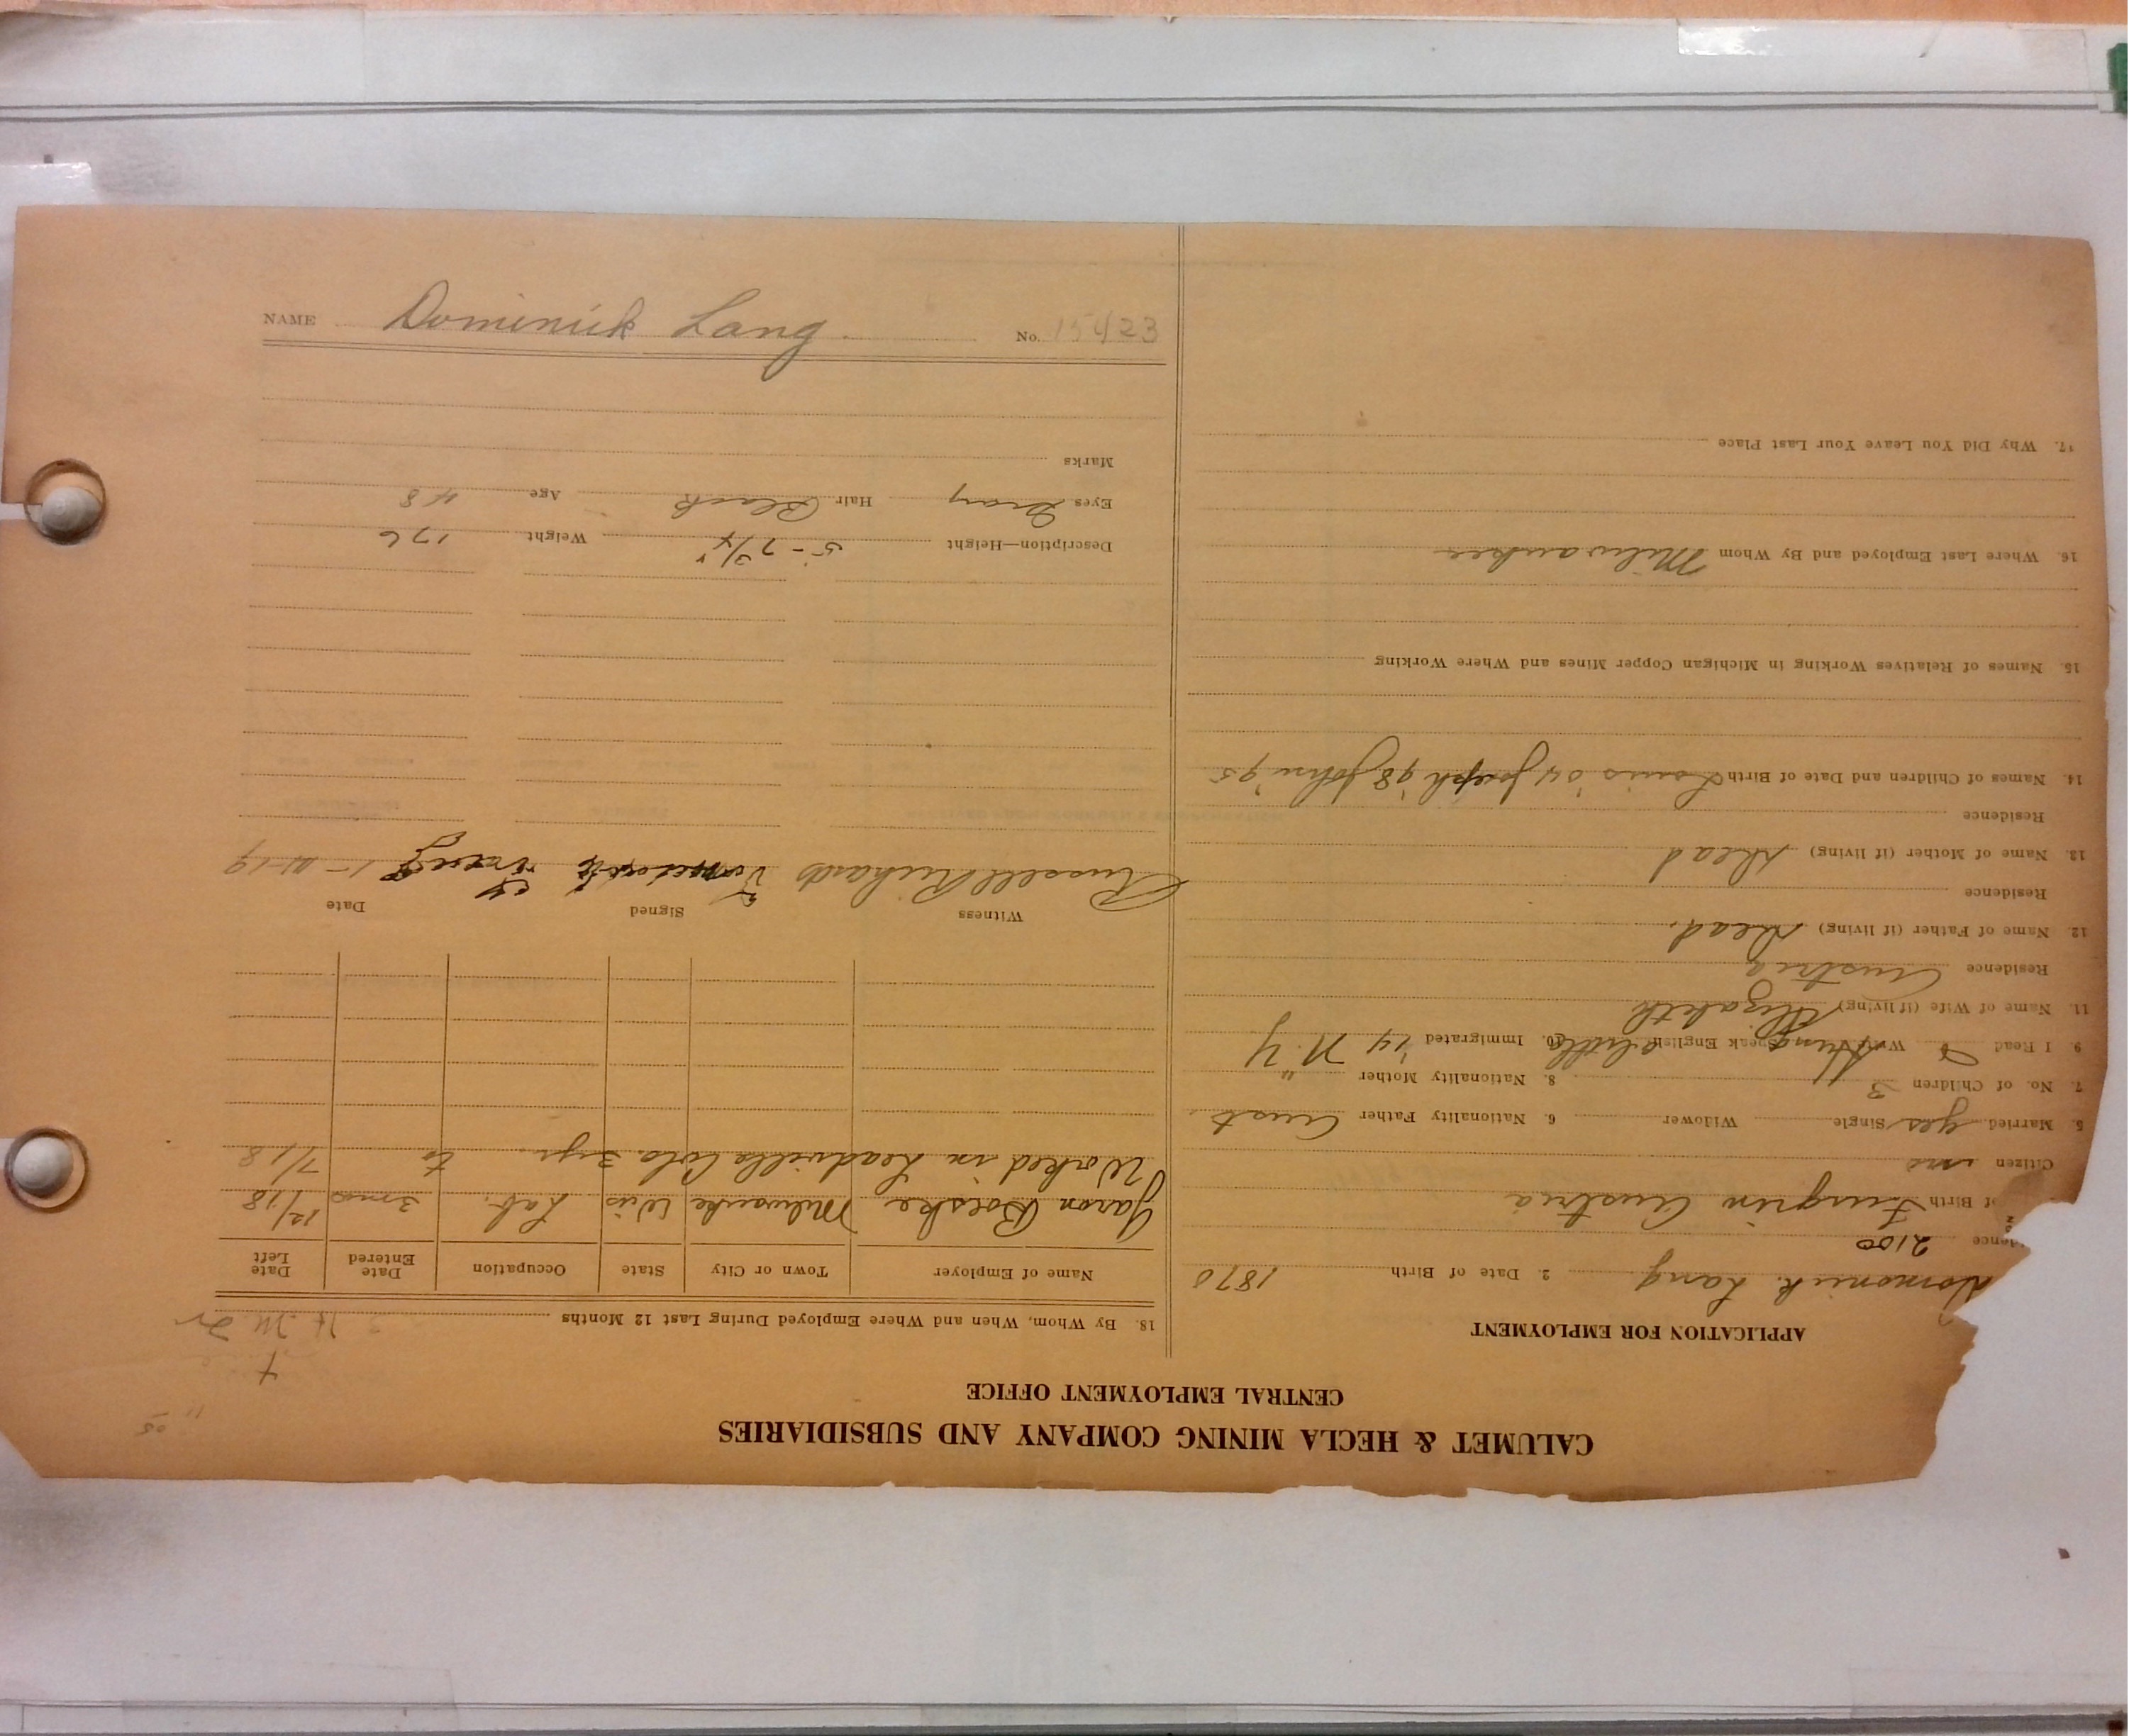 CALUMET & HECLA MINING COMPANY AND SUBSIDIARIES
CENTRAL EMPLOYMENT OFFICE
APPLICATION FOR EMPLOYMENT
Domonick Lang 2. Date of Birth 1870
dence 2100
of Birth Austria
Citizen no
5. Married yes Single Widower 6. Nationality Father Aust
7. No. of Children 3 8. Nationality Mother "
9. I Read Write Hung Speak English Little 10. Immigrated '14 N.Y
11. Name of Wife (if living) Elizabeth
Residence Austria
12. Name of Father (if living) Dead.
Residence
13. Name of Mother (if living) Dead
Residence
14. Names of Children and Date of Birth Louis '04 Joseph '98 John '95
15. Names of Relatives Working in Michigan Copper Mines and Where Working
16. Where Last Employed and By Whom Milwaukee
17. Why Did You Leave Your Last Place
18. By Whom, When and Where Employed During Last 12 Months
Name of Employer Town or City State Occupation Date Entered Date Left
Milwaukee Wis Lab. 3 mos 12/18
Worked in Leadville Colo 3 yr. to 7/18
Witness Signed Date
Russell Richards 1-11-19
Description—Height 5-7 3/4" Weight 176
Eyes Gray Hair Black Age 48
Marks
NAME Dominick Lang No. 15423